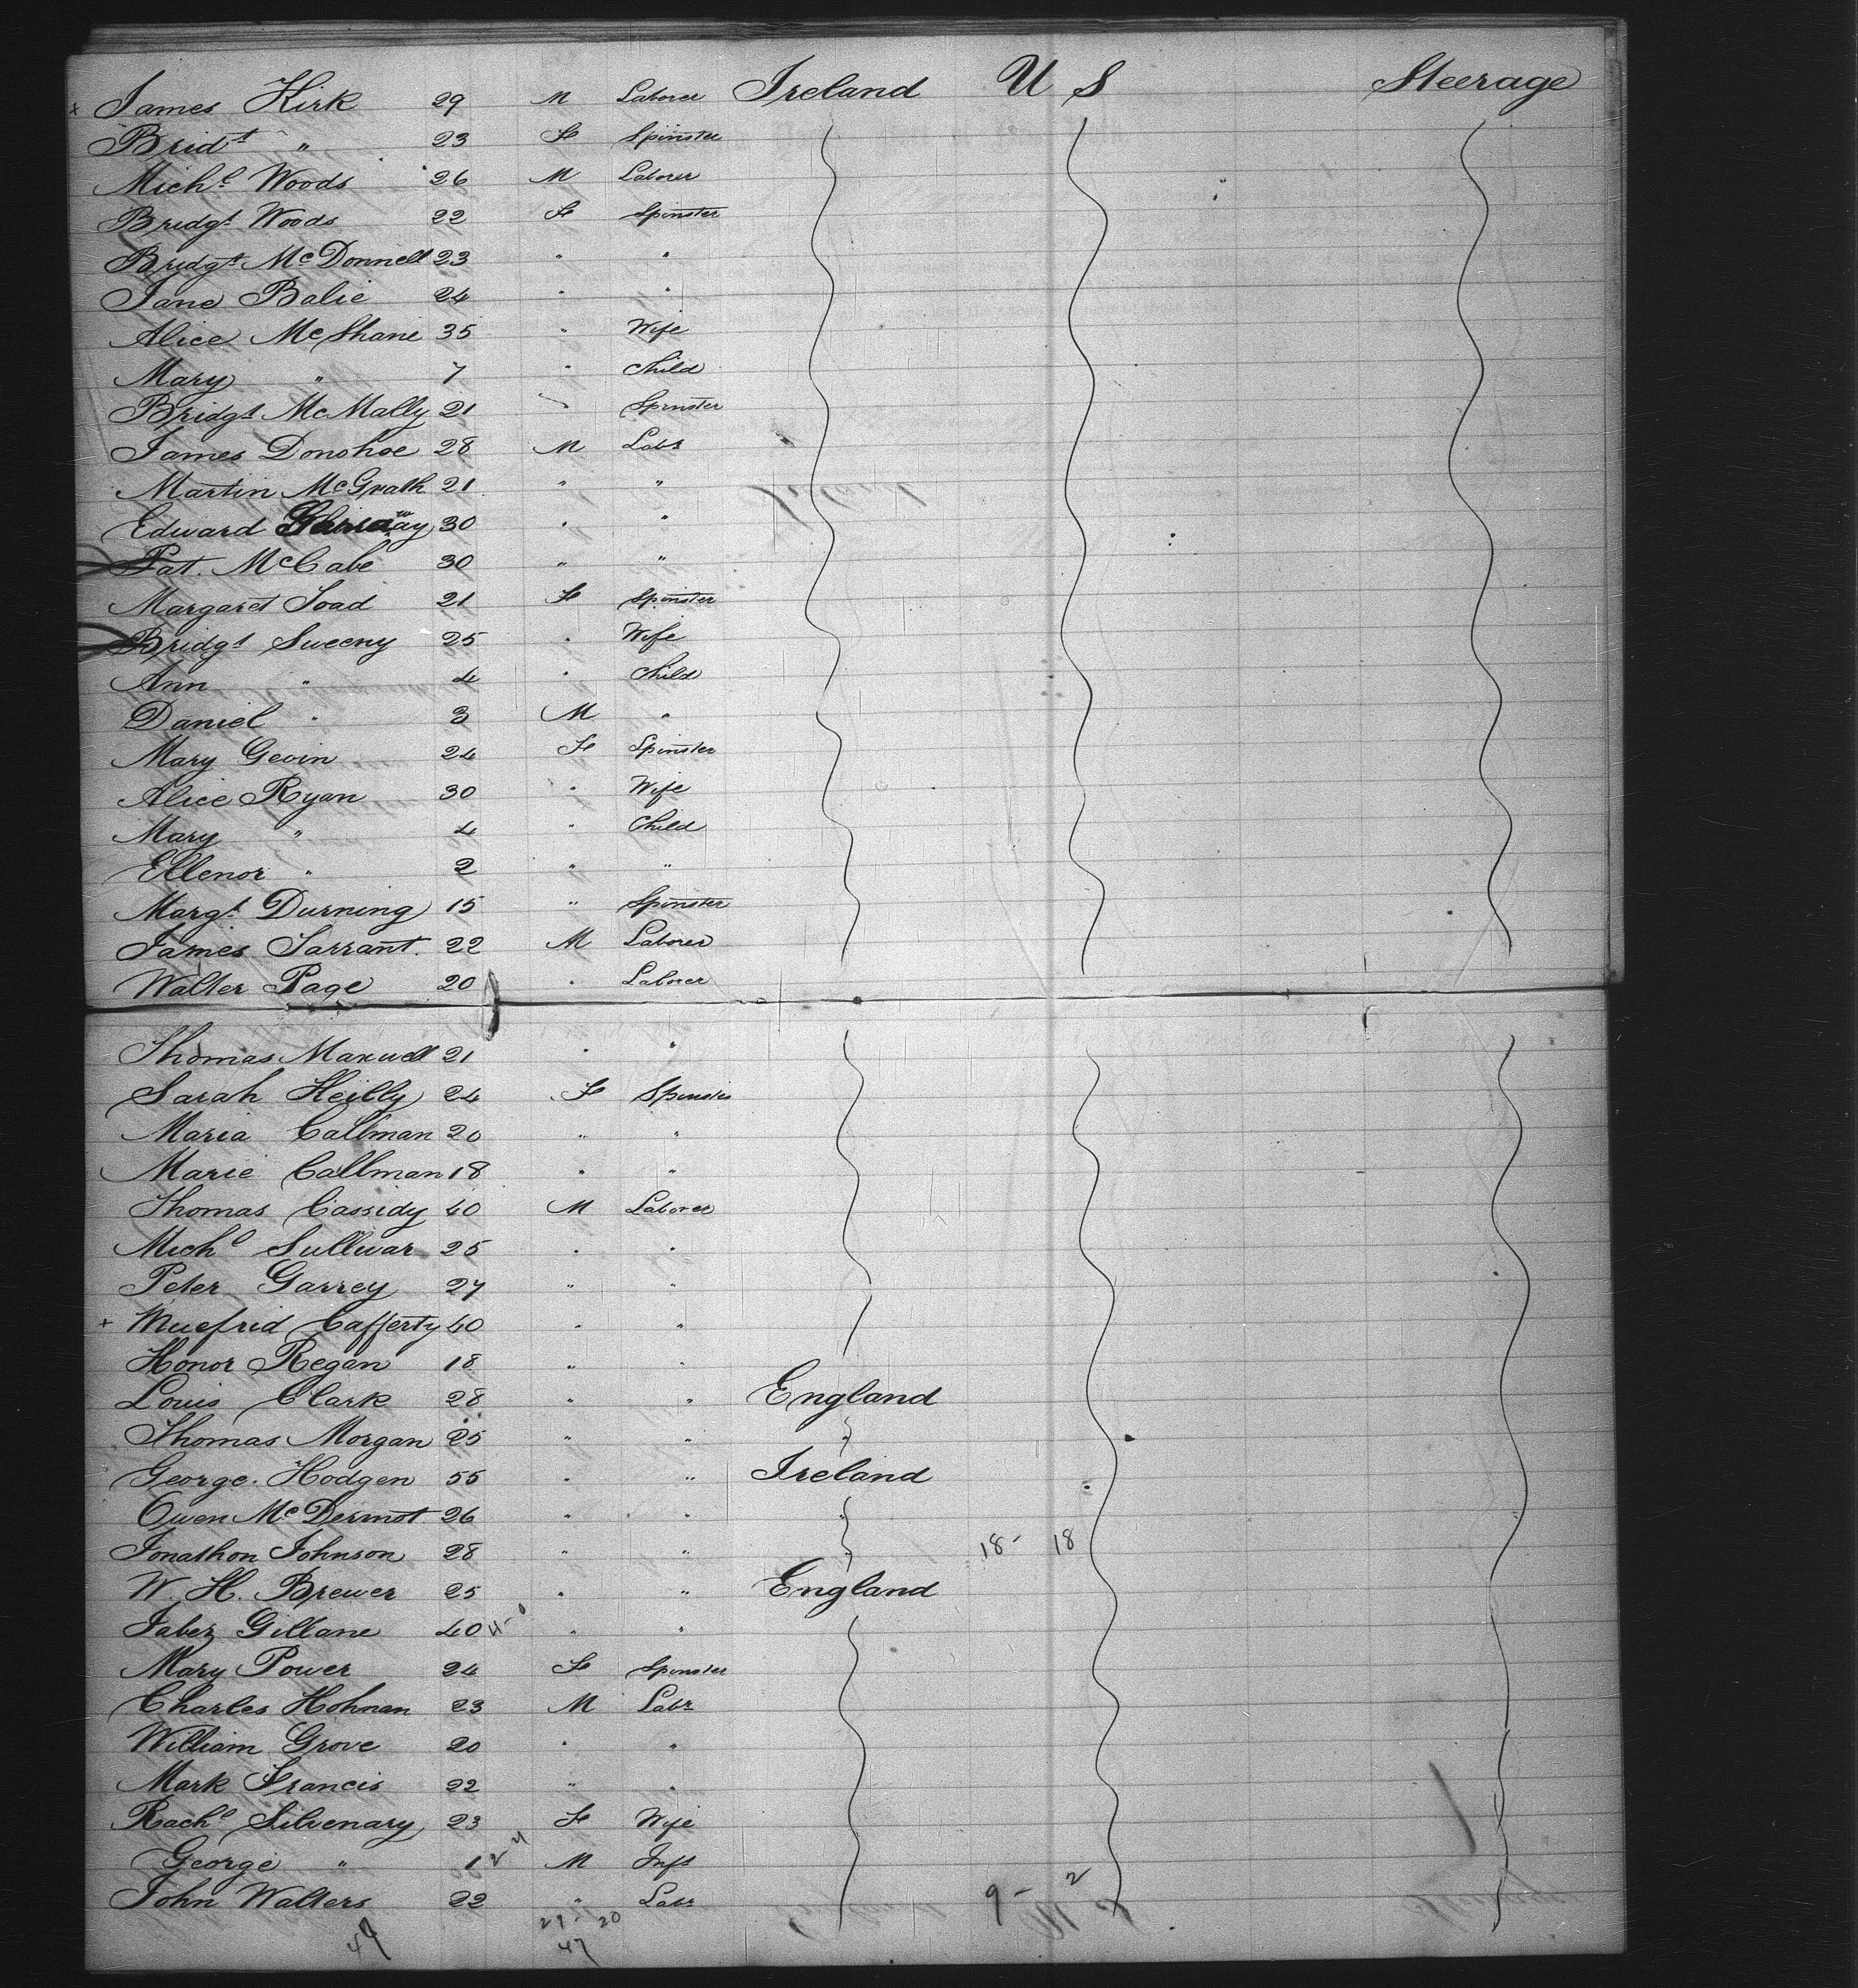 x James Kirk 29 M Laborer Ireland U S Steerage
Bridt " 23 Fe Spinster
Michl Woods 26 M Laborer
Bridgt Woods 22 Fe Spinster
Bridgt McDonnell 23 " "
Jane Balie 24 " "
Alice McShane 35 " Wife
Mary " 7 " Child
Bridgt McMally 21 " Spinster
James Donohoe 28 M Labr
Martin McGrath 21 " "
Edward 30 " "
Pat. McCabe 30 " "
Margaret Toad 21 Fe Spinster
Bridgt Sweeny 25 " Wife
Ann " 4 " Child
Daniel " 3 M "
Mary Gevin 24 Fe Spinster
Alice Ryan 30 " Wife
Mary " 4 " Child
Ellenor " 2 " "
Margt Durning 15 " Spinster
James Tarrant. 22 M Laborer
Walter Page 20 " Laborer
Thomas Maxwell 21 " "
Sarah Heilly 24 Fe Spinster
Maria Callman 20 " "
Marie Callman 18 " "
Thomas Cassidy 40 M Laborer
Michl Sullivar 25 " "
Peter Garrey 27 " "
x Cafferty 40 " "
Honor Regan 18 " "
Louis Clark 28 " " England
Thomas Morgan 25 " " "
George. Hodgen 55 " " Ireland
Owen McDermot. 26 " " "
Jonathon Johnson 28 " " " 18- 18
W. H. Brewer 25 " " England
Jabez Gillane 40 4-0 " "
Mary Power 24 Fe Spinster
Charles Hohnan 23 M Labr
William Grove 20 " "
Mark Francis 22 " "
Rachl Silvenary 23 Fe Wife
George " 1 2 4 M Inft
John Walters 22 " Labr 9- 2
47 27- 20
47